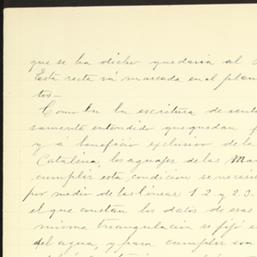 que se ha dicho quedaria al
Esta recta vá marcada en el plan
tos—
Como en la escritura de
samente entendido que quedan
y a beneficio exclusivo de la
Catalina, los aguajes de las Mar
cumplir esta condición se
por medio de las líneas 1 2 y 2 3.
el que constan los datos de esas
misma triangulacion se fijó e
del agua, y para cumplir con